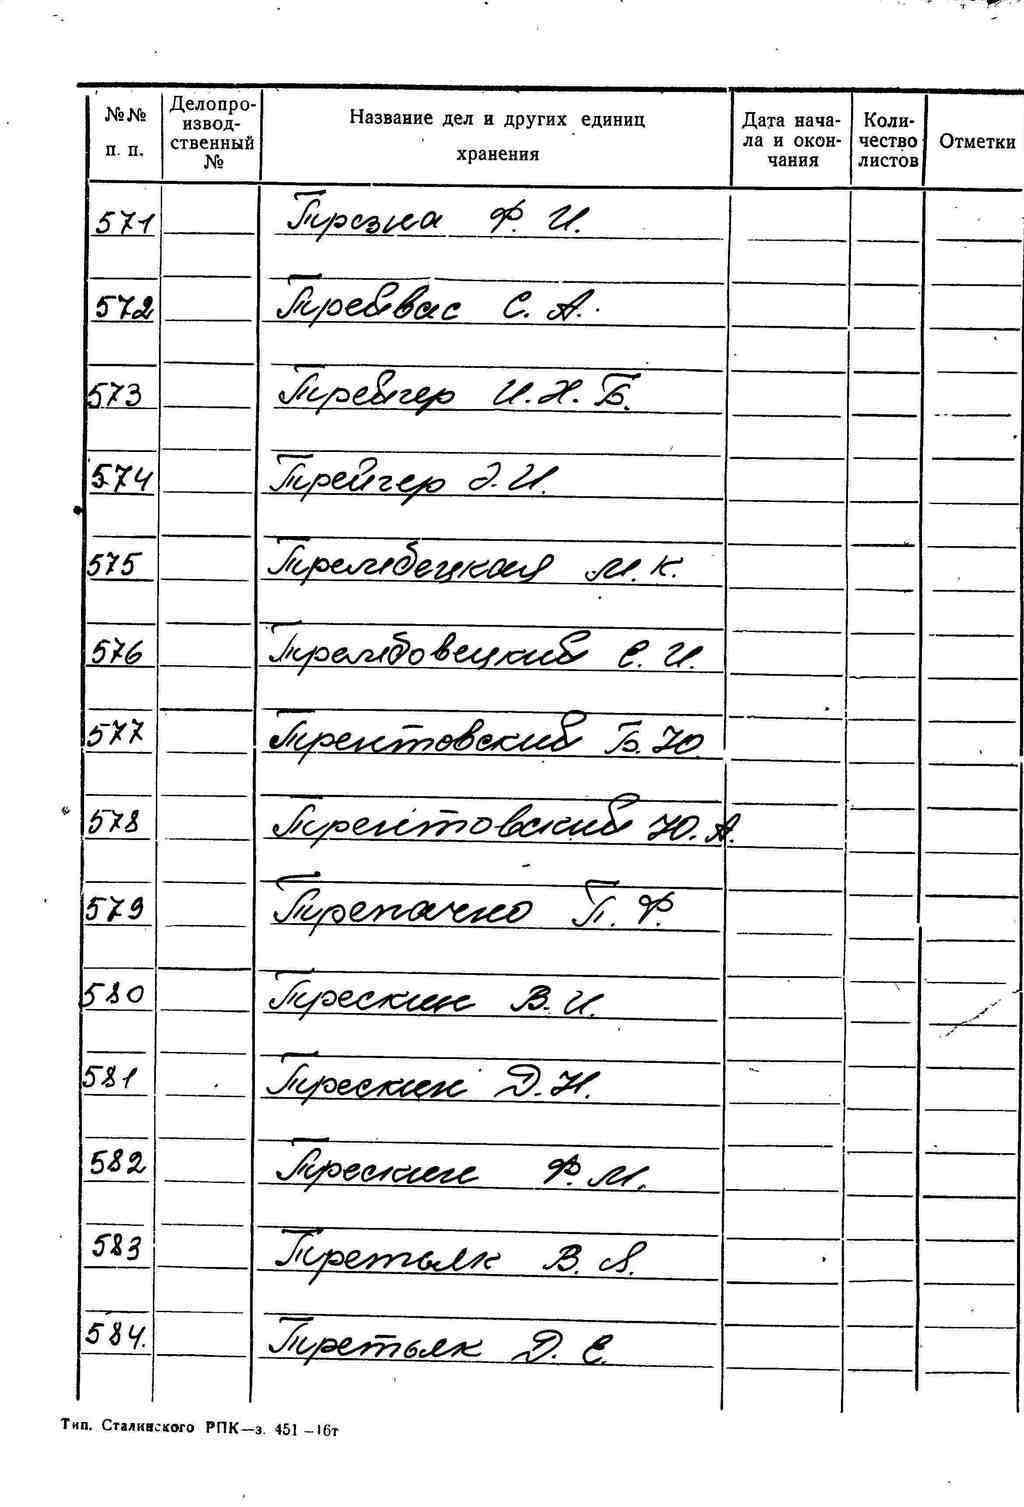 №№ п. п. Делопроизводственный № Название дел и других единиц хранения Дата начала и окончания Количество листов Отметки
571 Трезна Ф. И.
572 Трейвас С. А.
573 Трейгер И. Н. Б.
574 Трейгер Э. И.
575 Трембецкая М. К.
576 Трембовецкий Е. И.
577 Трентовский Б. Ю.
578 Трентовский Ю. А.
579 Трепачко П. Ф.
580 Трескин В. И.
581 Трескин Д. Н.
582 Трескин Ф. М.
583 Третьяк В. А.
584. Третьяк Д. Е.
Тип. Сталинского РПК—з. 451—16т